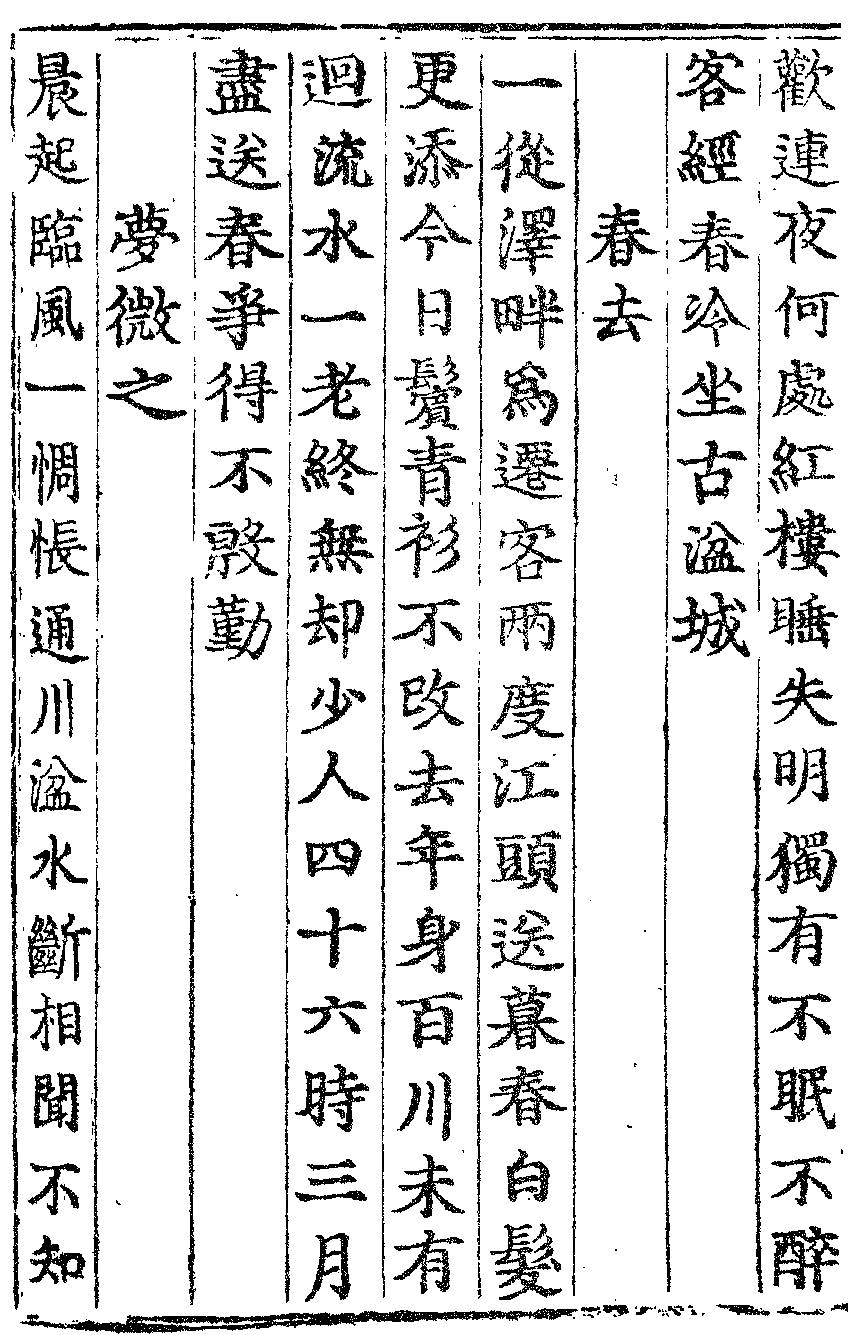 歡連夜何處紅樓睡失明獨有不眠不醉
客經春冷坐古湓城
春去
一從澤畔爲遷客兩度江頭送暮春白髮
更添今日鬢青衫不改去年身百川未有
迴流水一老終無却少人四十六時三月
盡送春爭得不殷勤
夢微之
晨起臨風一惆悵通川湓水斷相聞不知